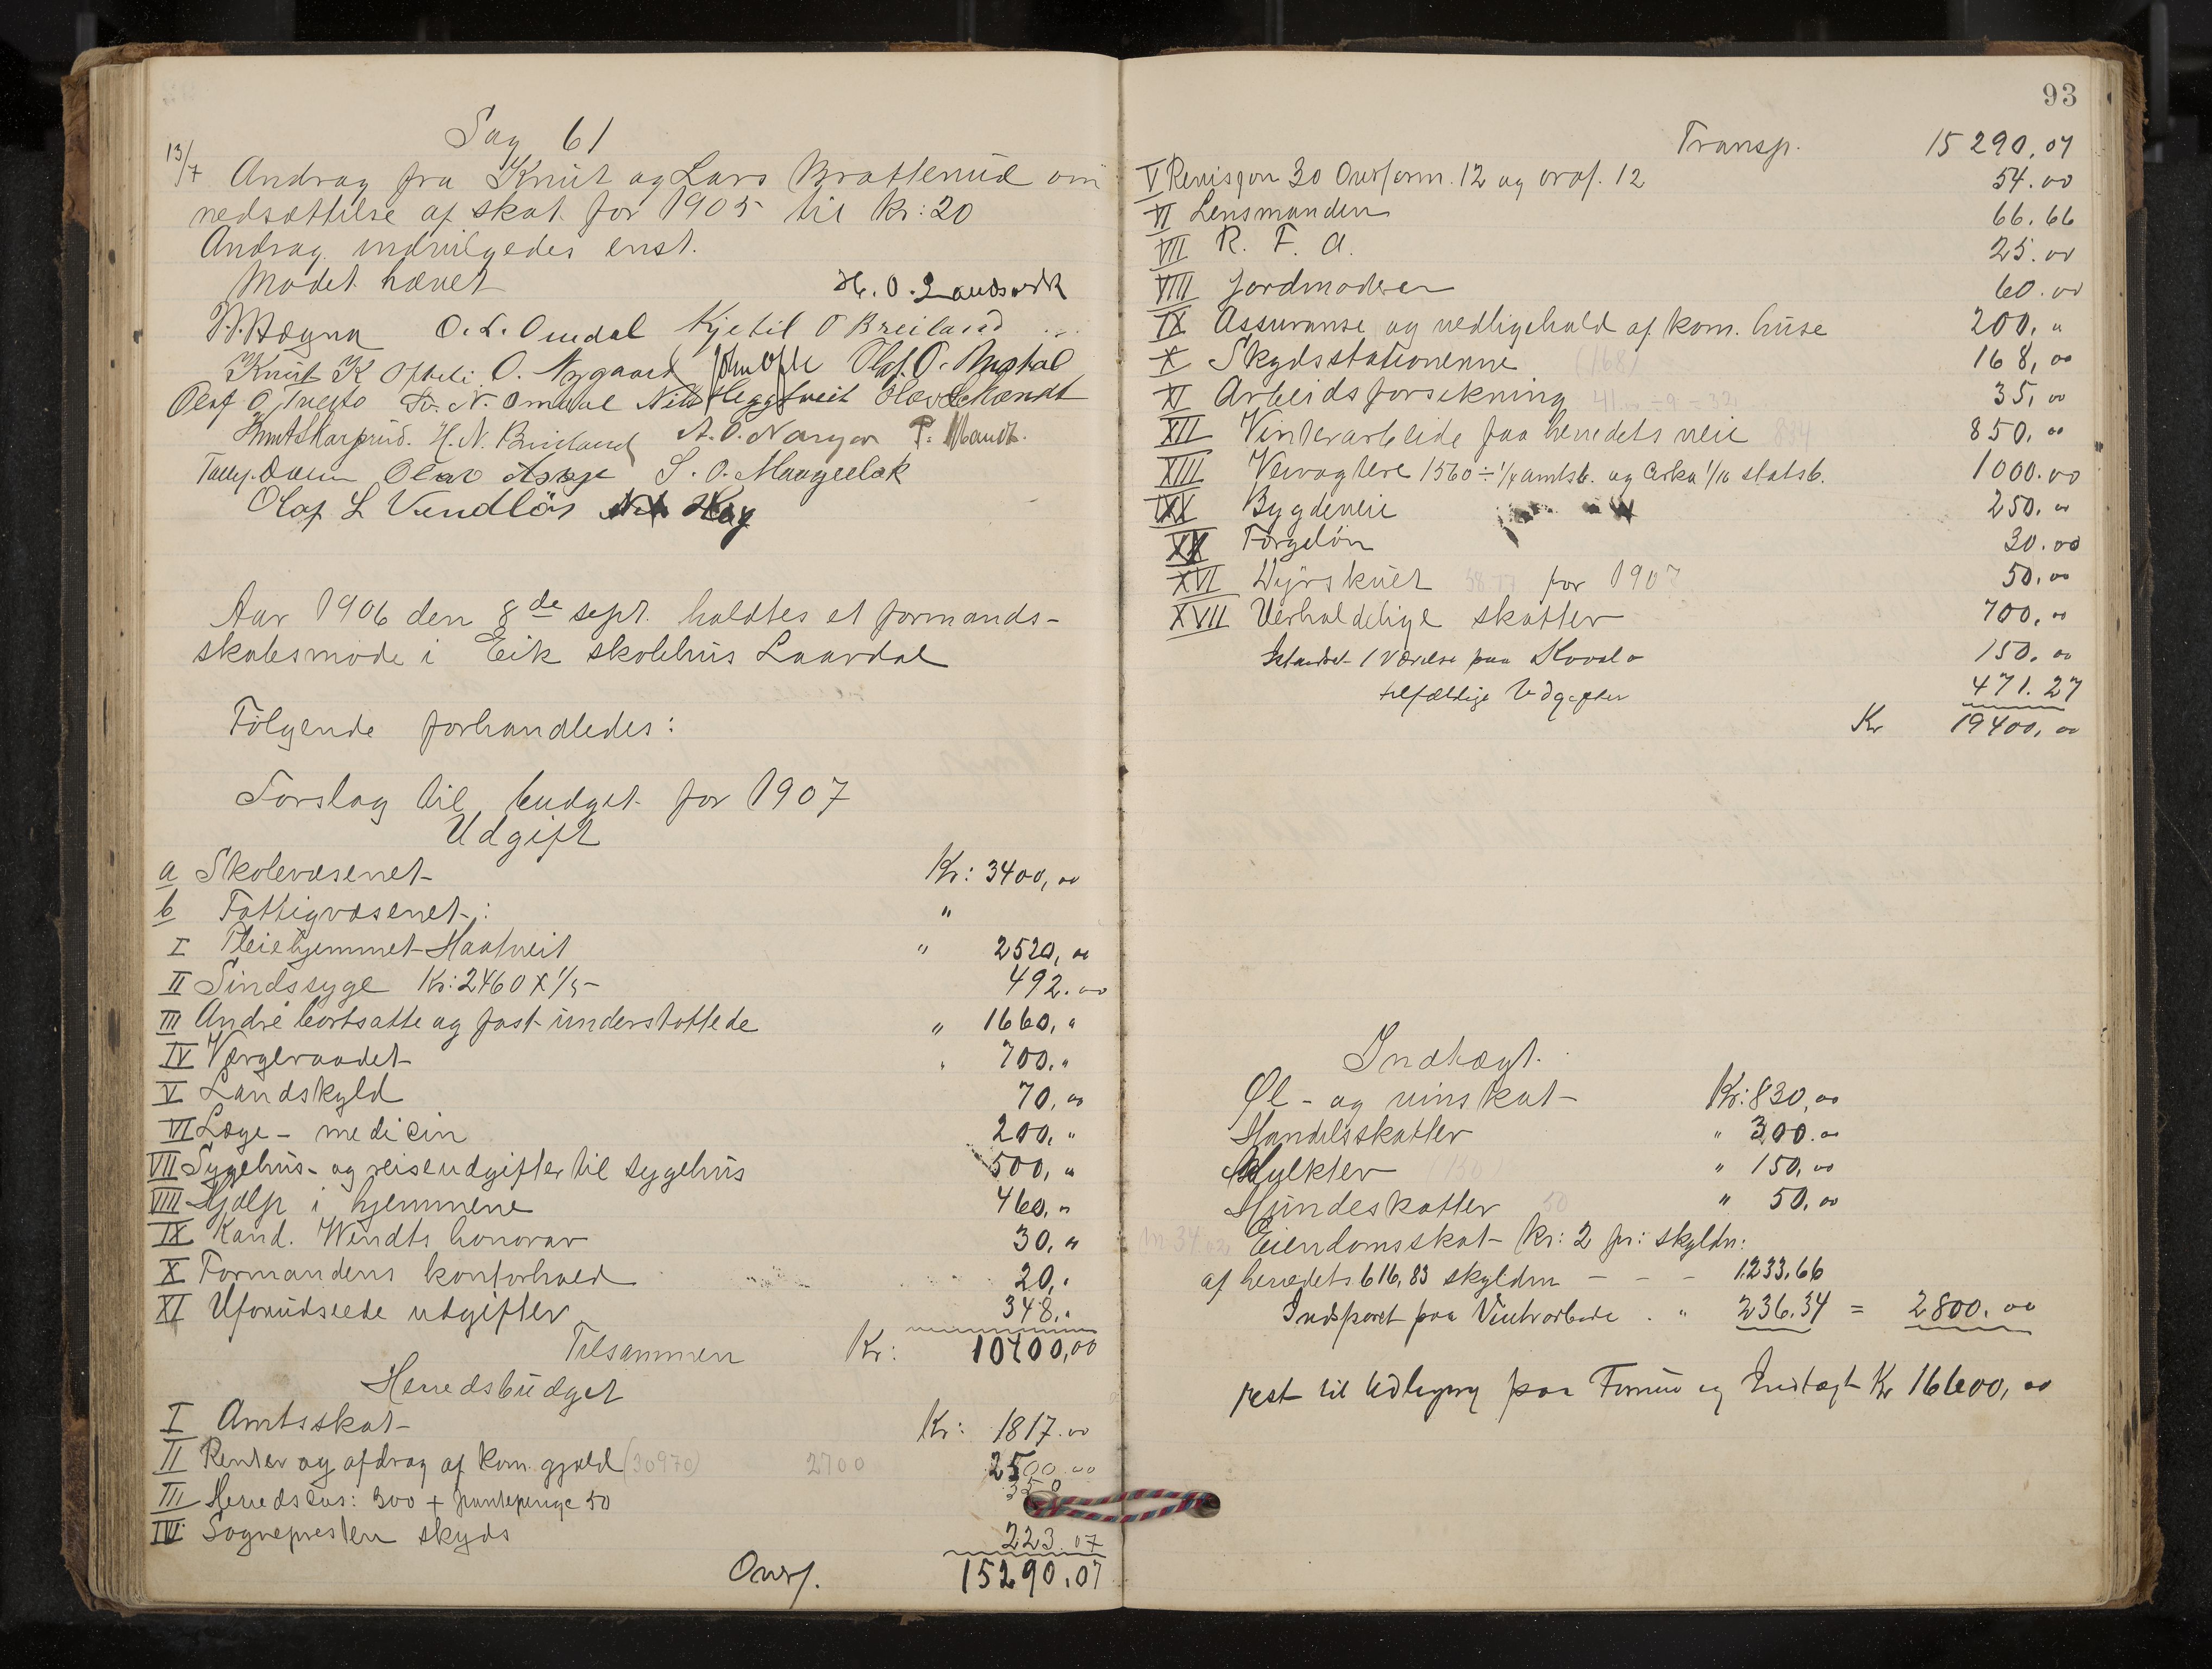 Sag 61
13/7 Andrag fra Knut og Lars Bratterud om
nedsættelse af skat for 1905 til Kr: 20
Andrag. indvilgedes enst.
Mødet hævet
H. O. Landsverk
O. L. Omdal Kjetil O Breiland
Knut K Ofteli O. Nygaard John Ofte Olaf O.
Olaf O. Tveito N. Omdal Nils Heggtveit Olav Mandt
Knut Skarprud. H. N. Breiland A. O. P. Mandt.
Tallef. Dalen Olav S. O. Maageelak
Olaf L Vindlös
Aar 1906 den 8de sept. holdtes et formands-
skabsmøde i Eik skolehus Laardal
Følgende forhandledes:
Forslag til budget for 1907
Udgift
a Skolevæsenet Kr: 3400,00
b Fattigvæsenet: "
I Pleiehjemmet Haatveit " 2520,00
II Sindssyge Kr: 2460 X 1/5 - 492.00
III Andre bortsatte og fast understøttede " 1660, "
IV Værgeraadet " 700. "
V Landskyld 70,00
VI Læge - medicin 200, "
VII Sygehus- og reiseudgifter til sygehus 500, "
VIII Hjælp i hjemmene 460, "
IX Kand. Wendts honorar 30, "
X Formandens kontorhold 20, "
XI Uforudseede utgifter 348, "
Tilsammen Kr: 10400,00
Herredsbudget
I Amtsskat Kr: 1817.00
II Renter og afdrag af kom. gjæld (30970) 2700 2500.00
III Herredskas: 300 + pantepenge 50 350
IV Sognepresten skyds 223.07
Overf. 15290.07
93
Transp. 15290,07
V Revisjon 30 Overform. 12 og oraf. 12 54.00
VI Lensmanden 66.66
VII R. F. A. 25.00
VIII Jordmoderen 60.00
IX Assuranse og vedligehold af kom. huse 200, "
X Skydsstationerne (168) 168,00
XI Arbeidsforsikring 35,00
XII Vinterarbeide paa herredets veie 834 850,00
XIII Veivogtere 1560 ÷ 1/4 amtsb. og Cirka 1/10 statsb. 1000.00
IXX Bygdeveie 250.00
XV Færgeløn 30.00
XVI Dyrskuet for 1907 50,00
XVII Uerholdelige skatter 700,00
Istandset 1 Værelse paa 150.00
tilfældige Udgifter 471.27
Kr 19400,00
Indtægt.
Øl - og vinskat - Kr: 830,00
Handelsskatter " 300.00
Mulkter " 150,00
Hundeskatter 50 " 50.00
Eiendomsskat kr: 2 pr: skyldm:
af herredets 616,83 skyldm - - - 1233,66
Indsparet paa Vinterarbeide . " 236.34 = 2800.00
rest til Udligning paa Formue og Indtægt Kr 16600,00